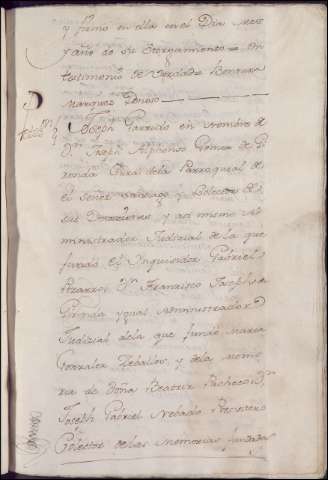 y firmo en ella en el Dia Mes
y año de su Otorgamiento = en
testimonio de Verdad = Bonifa
Marquez Donoso
Joseph Garrido en Nombre de
Dn. Joseph Alphonso Gomez de
Cura de la Parroquial de
el Señor Santiago y Colector de
sus y asi mismo Ad
ministrador Judizial de la que
fundó el Inquisidor Gabriel
Pizarro, Dn. Francisco Joseph de
Miranda ygual Administrador
Judizial de la que fundó Maria
Gonzalez Zeballos, y de la Memo
ria de Doña Beatriz Pacheco Dn.
Joseph Gabriel Nebado Presvitero
Colector de las Memorias fundadas